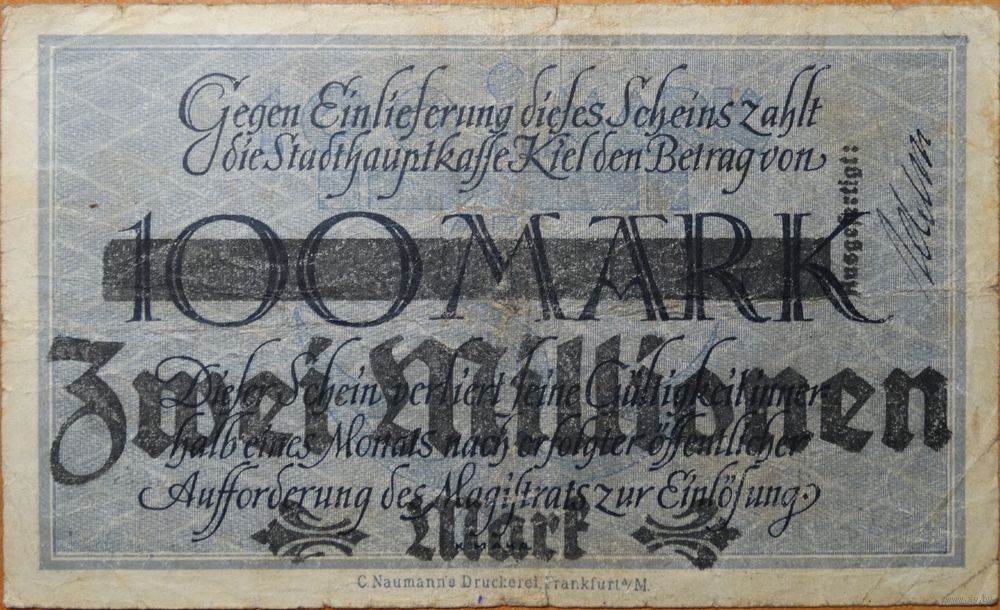 Gegen Einlieferung dieſes Scheins zahlt
die Stadthauptkaſſe Kiel den Betrag von
100 MARK
Ausgefertigt:
Zwei Millionen
Dieſer Schein verliert ſeine Gültigkeit inner-
halb eines Monats nach erfolgter öffentlicher
Aufforderung des Magiſtrats zur Einlöſung.
Mark
C. Naumann's Druckerei, Frankfurt a/M.